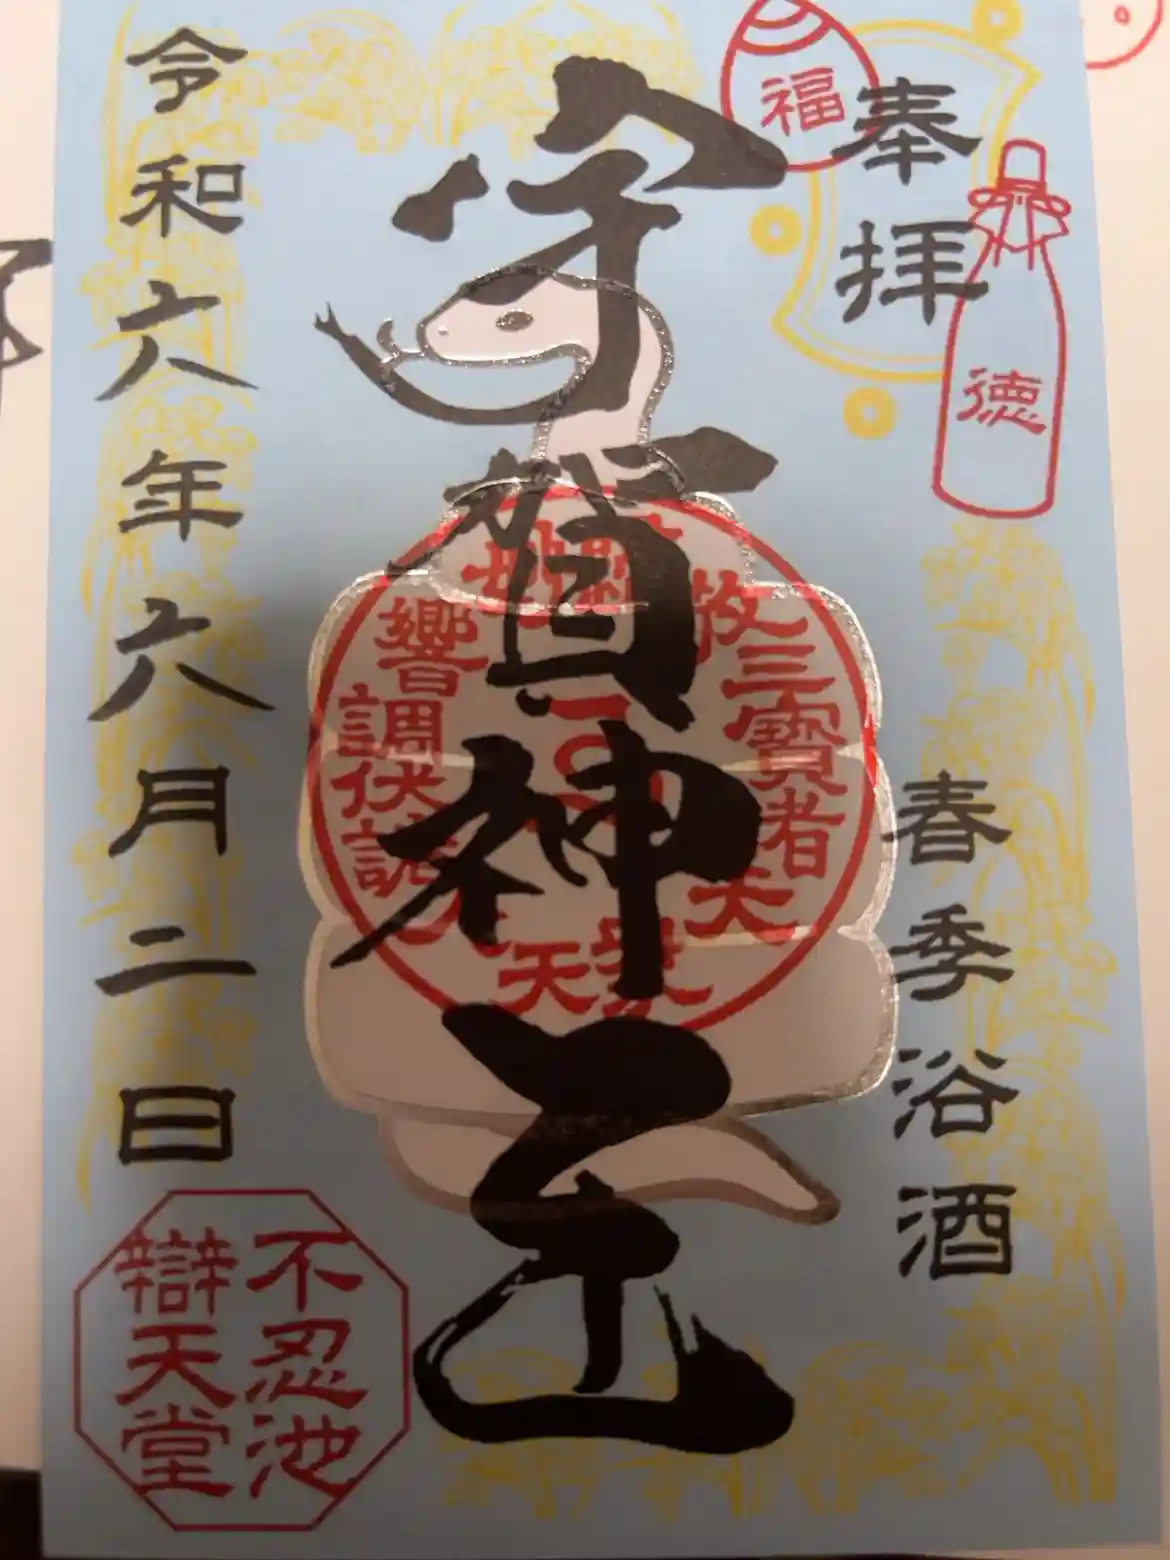 福
奉拝
徳
春季浴酒
宇賀神王
三寶者大
天
響調伏
令和六年六月二日
不忍池
辯天堂